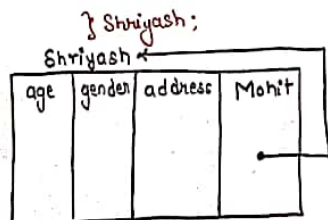 } Shriyash;
Shriyash
age gender address Mohit